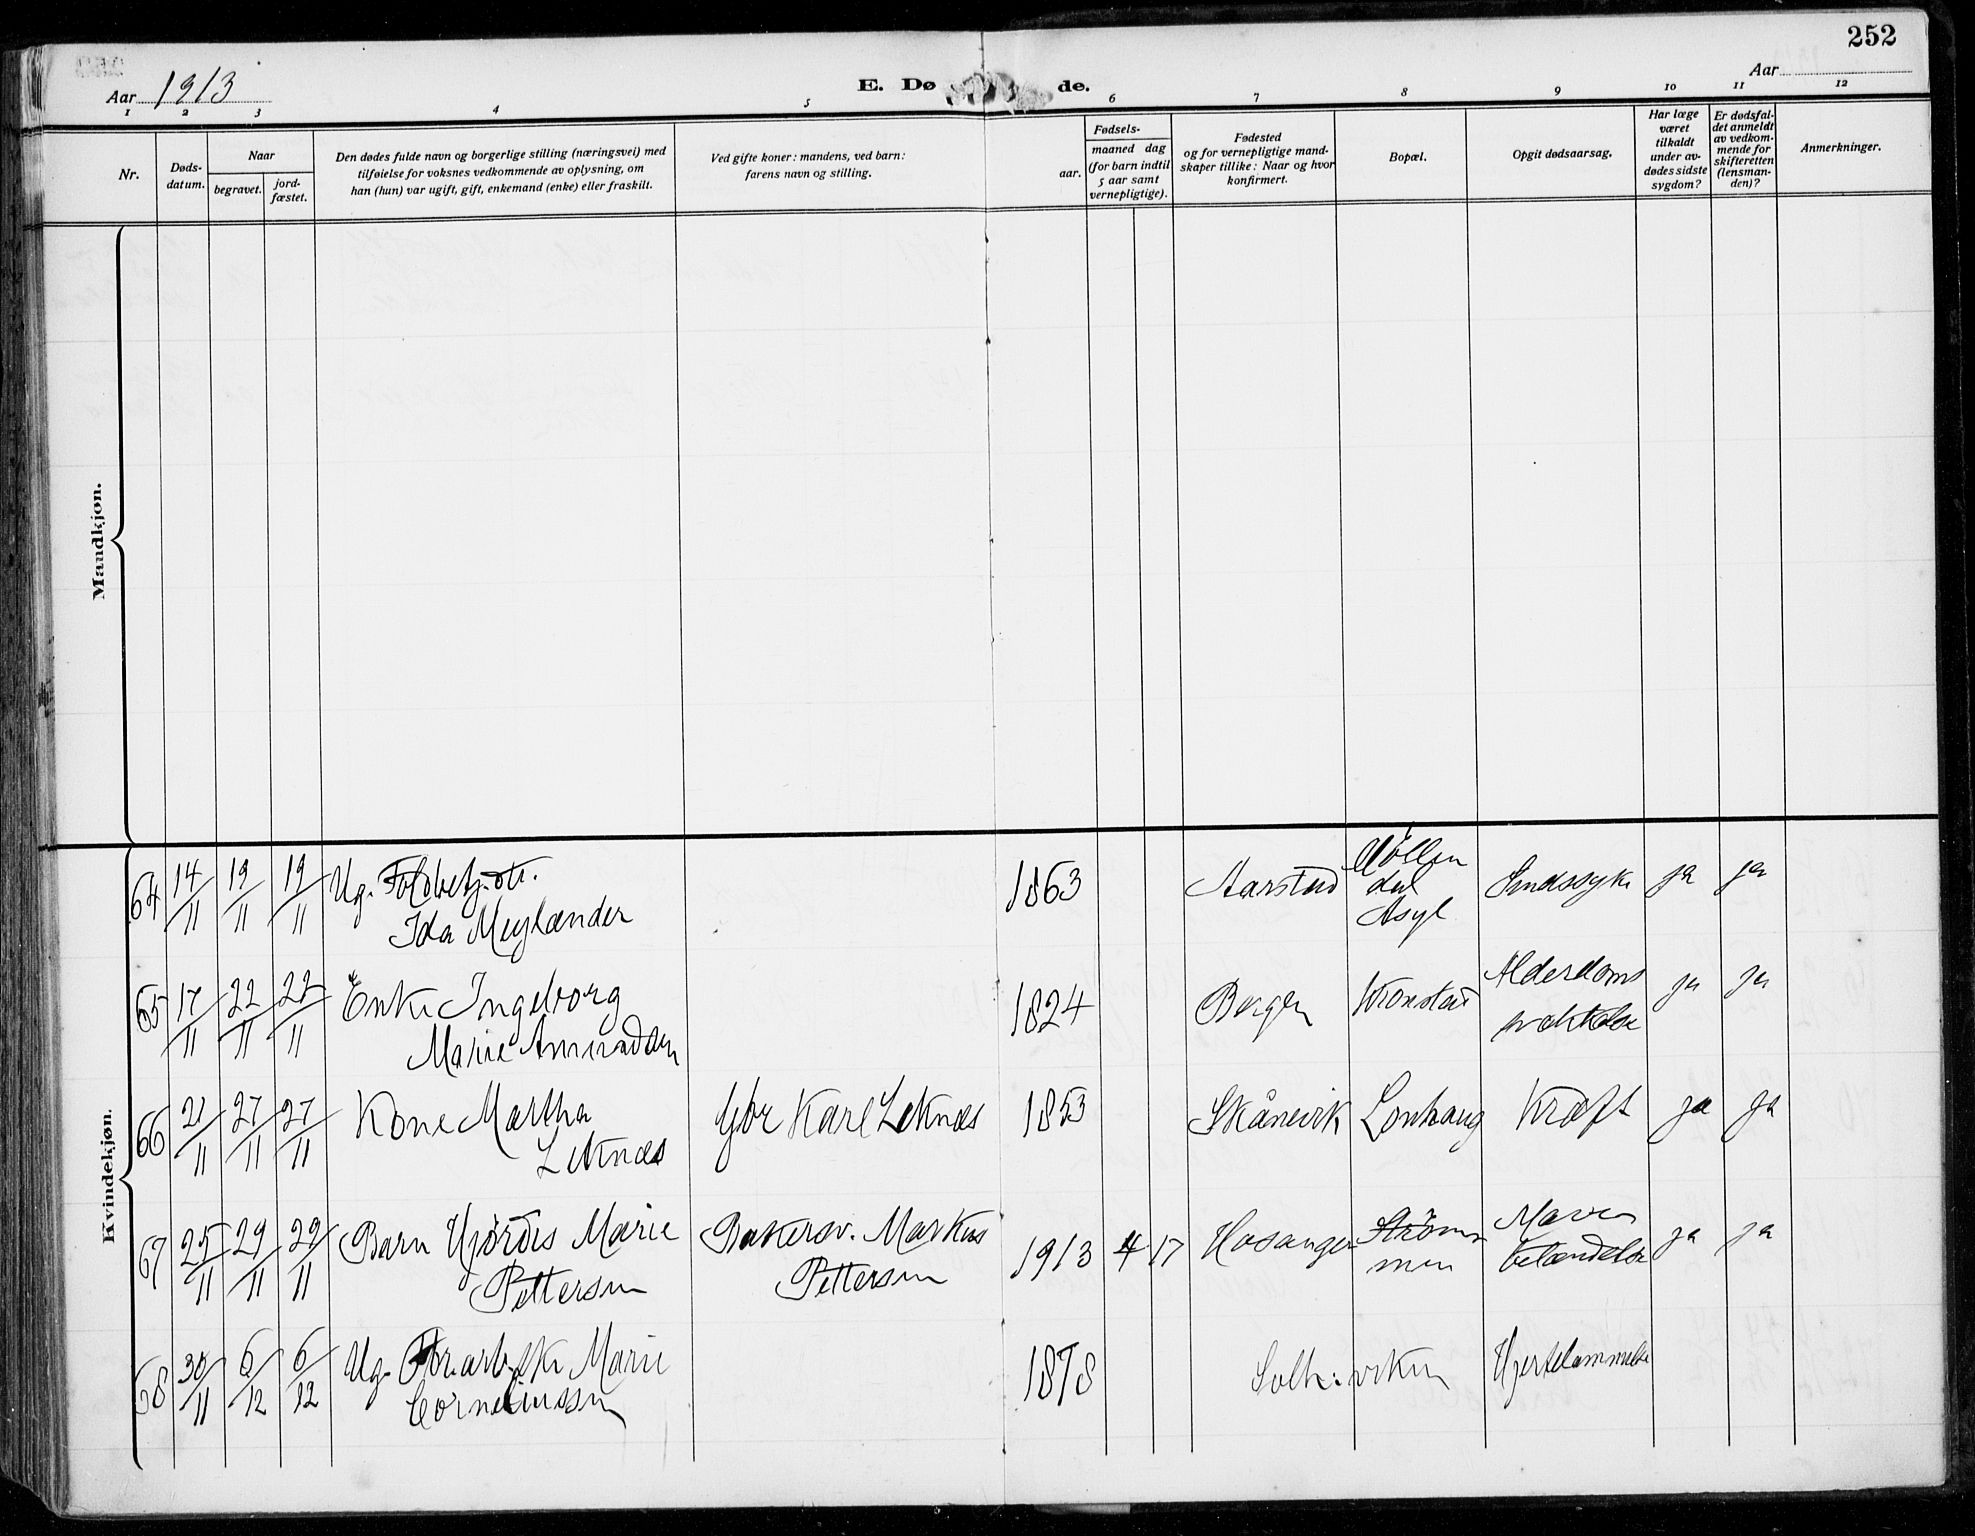 252
Aar 1913
E. Dø de.
Aar
1 2 3 4 5 6 7 8 9 10 11 12
Nr.
Døds-
datum.
Naar
begravet.
jord-
fæstet.
Den dødes fulde navn og borgerlige stilling (næringsvei) med
tilføielse for voksnes vedkommende av oplysning, om
han (hun) var ugift, gift, enkemand (enke) eller fraskilt.
Ved gifte koner: mandens, ved barn:
farens navn og stilling.
Fødsels-
aar.
maaned dag
(for barn indtil
5 aar samt
vernepligtige).
Fødested
og for vernepligtige mand-
skaper tillike: Naar og hvor
konfirmert.
Bopæl.
Opgit dødsaarsag.
Har læge
været
tilkaldt
under av-
dødes sidste
sygdom?
Er dødsfal-
det anmeldt
av vedkom-
mende for
skifteretten
(lensman-
den)?
Anmerkninger.
Mandkjøn.
Kvindekjøn.
64 14/11 19/11 19/11 Ug.
Ida Meylænder
1863
Aarstad
Møllen
dal
Asyl
Sindssyke
ja ja
65 17/11 22/11 22/11 Enke Ingeborg
Marie
1824
Bergen
Kronstad
Alderdoms
ja ja
66 21/11 27/11 27/11 Kone Martha
Leknæs
Gbr Karl Leknæs
1853
Skånevik
Lonhaug
Kræft
ja ja
67 25/11 29/11 29/11 Barn Hjørdis Marie
Pettersen
Bakersv. Markus
Pettersen
1913 4 17
Hosanger
Strøm
men
Mave
betændelse
ja ja
68 30/11 6/12 6/12 Ug. Marie
Corneliussen
1878
Solh: viken
Hjertelammelse